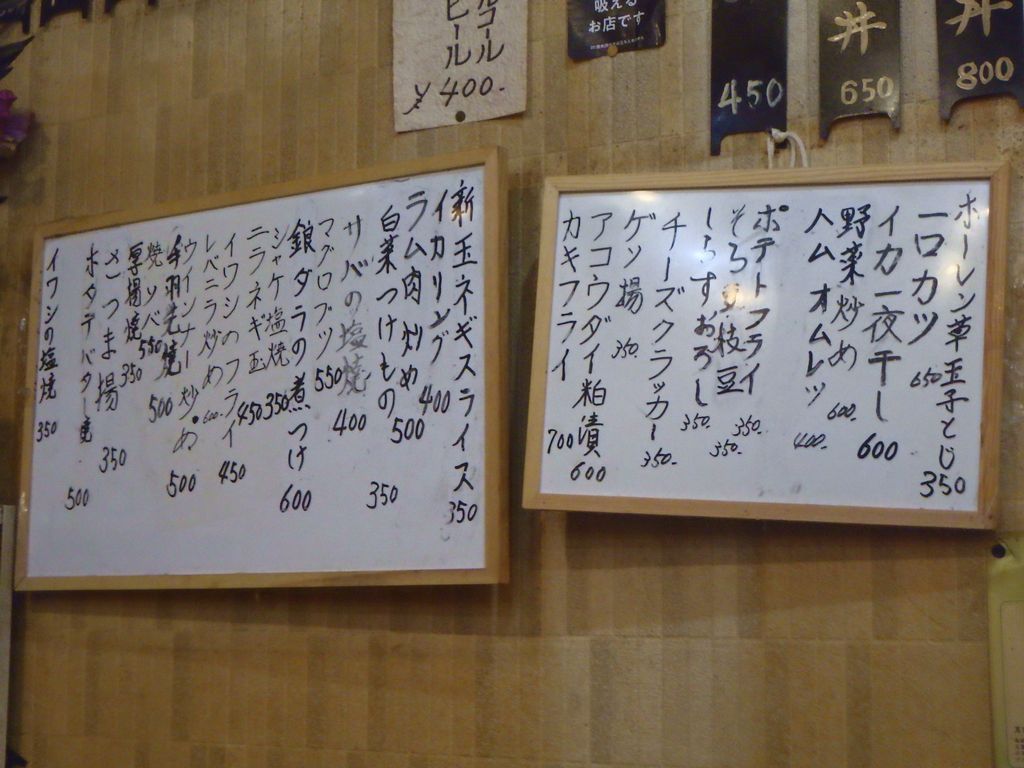 コール
ビール
¥400-
吸える
お店です
450
丼
650
丼
800
新玉ネギスライス 350
イカリング 400
ラム肉炒め 500
白菜つけもの 350
サバの塩焼 400
マグロブツ 550
銀ダラの煮つけ 600
シャケ塩焼 350
ニラネギ玉 450
イワシのフライ 450
レバニラ炒め 600-
ウインナー炒め 500
手羽先焼 500
焼ソバ 550
厚揚焼 350
さつま揚 350
ホタテバター焼 500
イワシの塩焼 350
ホーレン草玉子とじ 350
一口カツ 650
イカ一夜干し 600
野菜炒め 600-
ハムオムレツ 400-
ポテトフライ 350-
そらまめ枝豆 350-
しらすおろし 350-
チーズクラッカー 350-
ゲソ揚 350-
アコウダイ粕漬 600
カキフライ 700